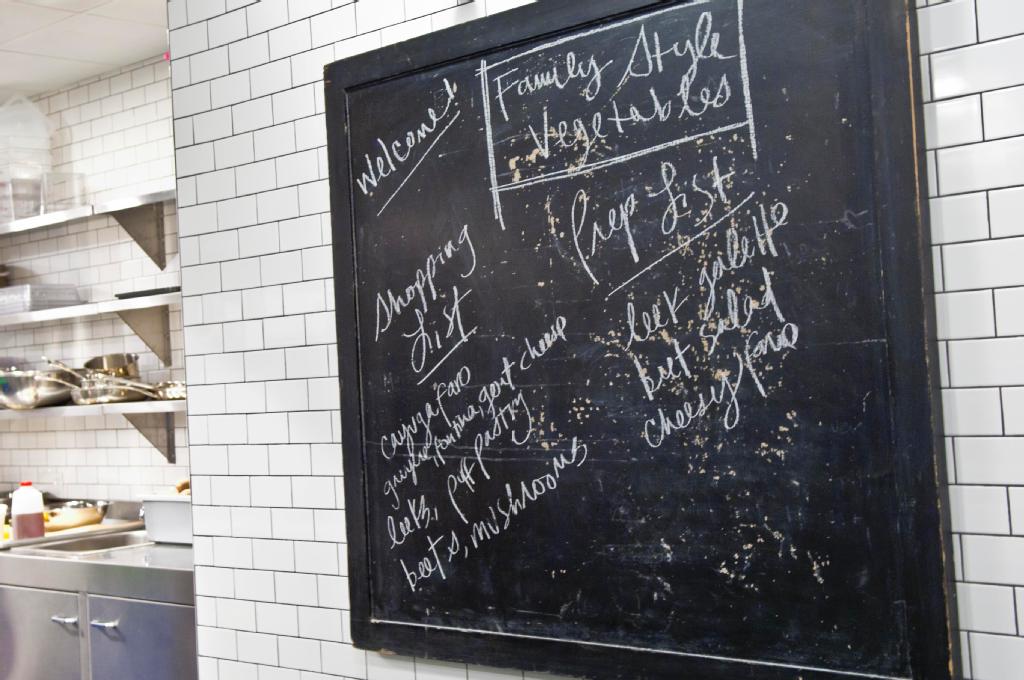 Welcome!
Family Style
Vegetables
Prep List
leek galette
beet salad
cheesy faro
Shopping
List
cayuga faro
gruyere, fontina, goat cheese
leeks, puff pastry
beets, mushrooms